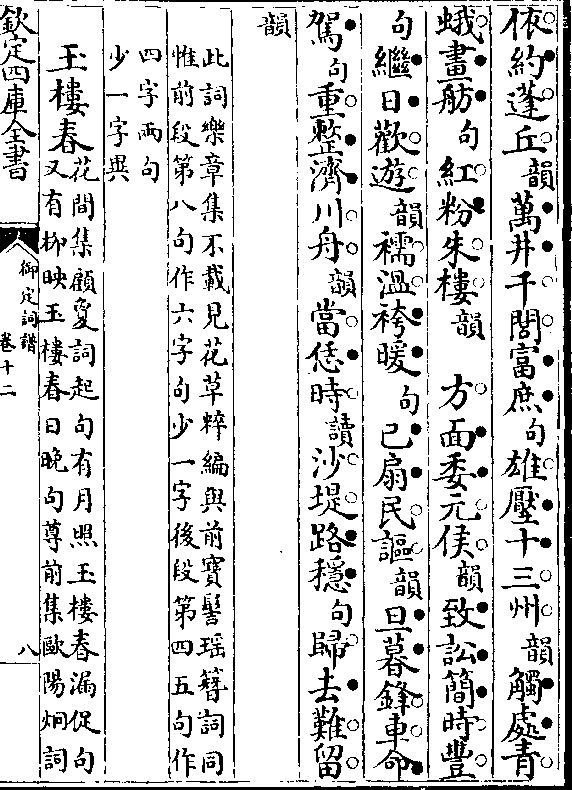 依約蓬丘韻萬井千閭富庶句雄壓十三州韻觸處青
蛾畫舫句紅粉朱樓韻　方面委元侯韻致訟簡時豐
句繼日歡遊韻襦溫袴暖句已扇民謳韻旦暮鋒車命
駕句重整濟川舟韻當恁時讀沙堤路穩句歸去難留
韻
此詞樂章集不載見花草粹編與前寶髻瑶簪詞同
惟前段第八句作六字句少一字後段第四五句作
四字兩句
少一字異
玉樓春
花間集顧敻詞起句有月照玉樓春漏促句
又有柳映玉樓春日晚句尊前集歐陽炯詞
欽定四庫全書
御定詞譜
卷十二
八